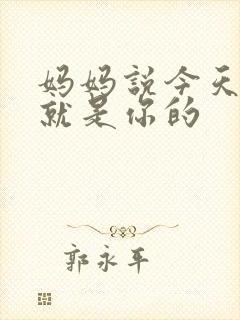 妈妈説今天
就是你的
郭永平